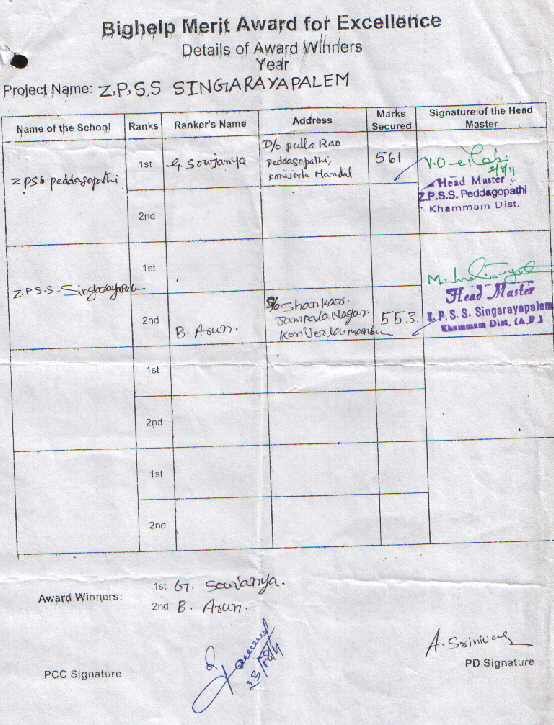 Bighelp Merit Award for Excellence
Details of Award Winners
Year
Project Name: Z.P.S.S SINGARAYAPALEM
Name of the School Ranks Ranker's Name Address Marks Secured Signature of the Head Master
Z PSS peddagopathi 1st G. Soujanya D/o pulla Rao
peddagopathi,
Mandal
561
Head Master
Z.P.S.S. Peddagopathi
Khammam Dist.
2nd
Z.P.S.S. Singarayapalem 1st
2nd B. Arun. S/o Shankar.
Nagar
553
Head Master
Z.P.S.S. Singarayapalem
Khammam Dist. (A.P.)
1st
2nd
1st
2nd
Award Winners: 1st G. Soujanya.
2nd B. Arun.
A. Srinivas
PCC Signature
PD Signature